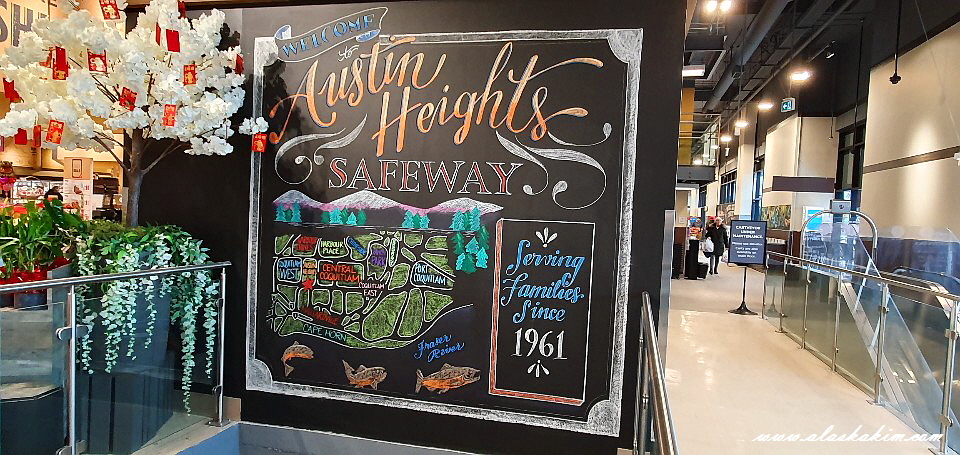 WELCOME
to
Austin
Heights
SAFEWAY
HARBOUR
PLACE
CENTRAL
COQUITLAM
COQUITLAM
EAST
PORT
COQUITLAM
WEST
CAPE HORN
Fraser
River
Serving
Families
Since
1961
CARTVEYOR
UNDER
MAINTENANCE
www.alaskakim.com